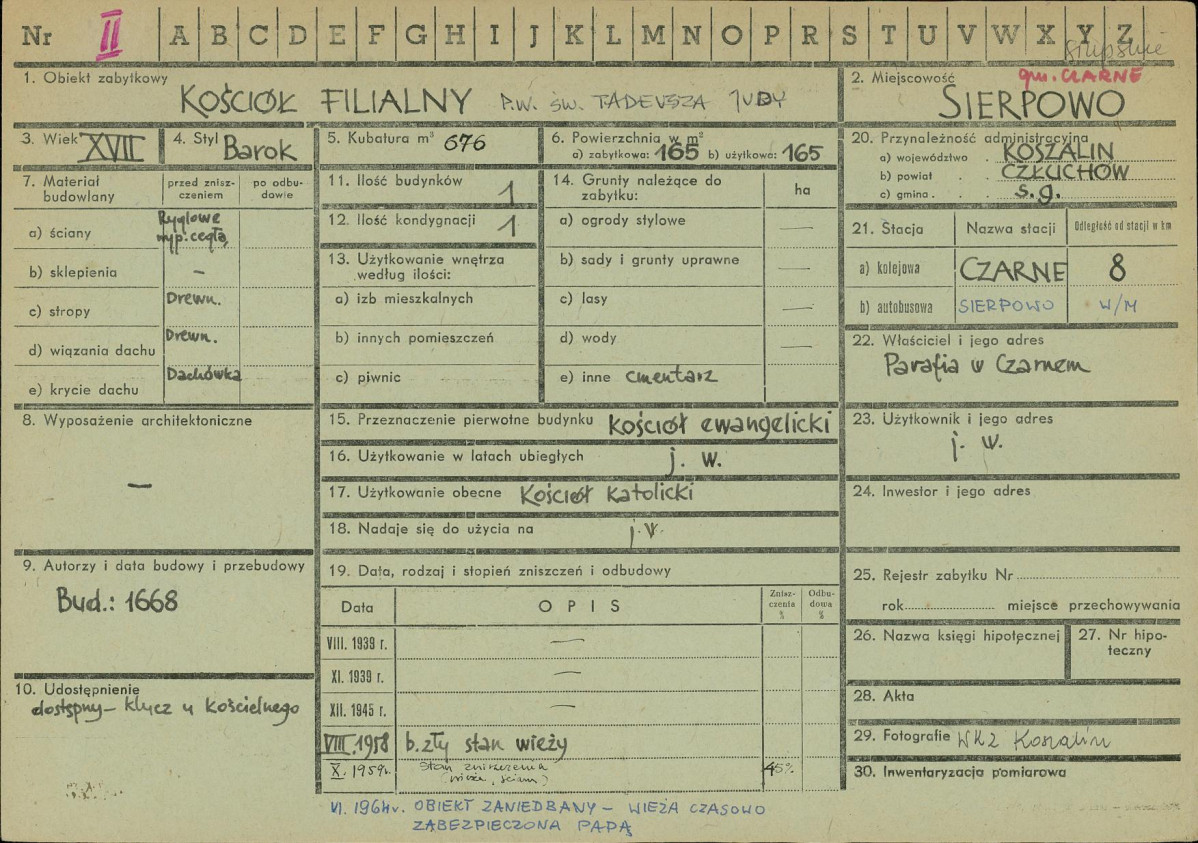 Nr II A B C D E F G H I J K L M N O P R S T U V W X Y Z
słupskie
1. Obiekt zabytkowy
KOŚCIÓŁ FILIALNY P.W. ŚW. TADEUSZA JUDY
2. Miejscowość
gm. CZARNE
SIERPOWO
3. Wiek XVII
4. Styl Barok
5. Kubatura m³ 676
6. Powierzchnia w m²
a) zabytkowa: 165 b) użytkowa: 165
20. Przynależność administracyjna
a) województwo . KOSZALIN
b) powiat . . CZŁUCHÓW
c) gmina . . . s.g.
7. Materiał budowlany
przed znisz-
czeniem
po odbu-
dowie
a) ściany Ryglowe
wyp. cegłą
b) sklepienia –
c) stropy Drewn.
d) wiązania dachu Drewn.
e) krycie dachu Dachówka
11. Ilość budynków 1
12. Ilość kondygnacji 1
13. Użytkowanie wnętrza
według ilości:
a) izb mieszkalnych
b) innych pomieszczeń
c) piwnic
14. Grunty należące do
zabytku:
ha
a) ogrody stylowe —
b) sady i grunty uprawne —
c) lasy —
d) wody —
e) inne cmentarz
21. Stacja
Nazwa stacji
Odległość od stacji w km
a) kolejowa CZARNE 8
b) autobusowa SIERPOWO W/M
22. Właściciel i jego adres
Parafia w Czarnem
8. Wyposażenie architektoniczne
—
15. Przeznaczenie pierwotne budynku Kościół ewangelicki
16. Użytkowanie w latach ubiegłych j. w.
17. Użytkowanie obecne Kościół Katolicki
18. Nadaje się do użycia na j.w.
23. Użytkownik i jego adres
j. w.
24. Inwestor i jego adres
9. Autorzy i data budowy i przebudowy
Bud.: 1668
10. Udostępnienie
dostępny – klucz u Kościelnego
19. Data, rodzaj i stopień zniszczeń i odbudowy
Data
OPIS
Znisz-
czenia
%
Odbu-
dowa
%
VIII. 1939 r. —
XI. 1939 r. —
XII. 1945 r. —
VIII. 1958 b. zły stan wieży
X. 1959r. Stan zniszczenia 45%
(wieża, ściany)
VI. 1964r. OBIEKT ZANIEDBANY – WIEŻA CZASOWO
ZABEZPIECZONA PAPĄ
25. Rejestr zabytku Nr
rok miejsce przechowywania
26. Nazwa księgi hipotecznej
27. Nr hipo-
teczny
28. Akta
29. Fotografie WKZ Koszalin
30. Inwentaryzacja pomiarowa